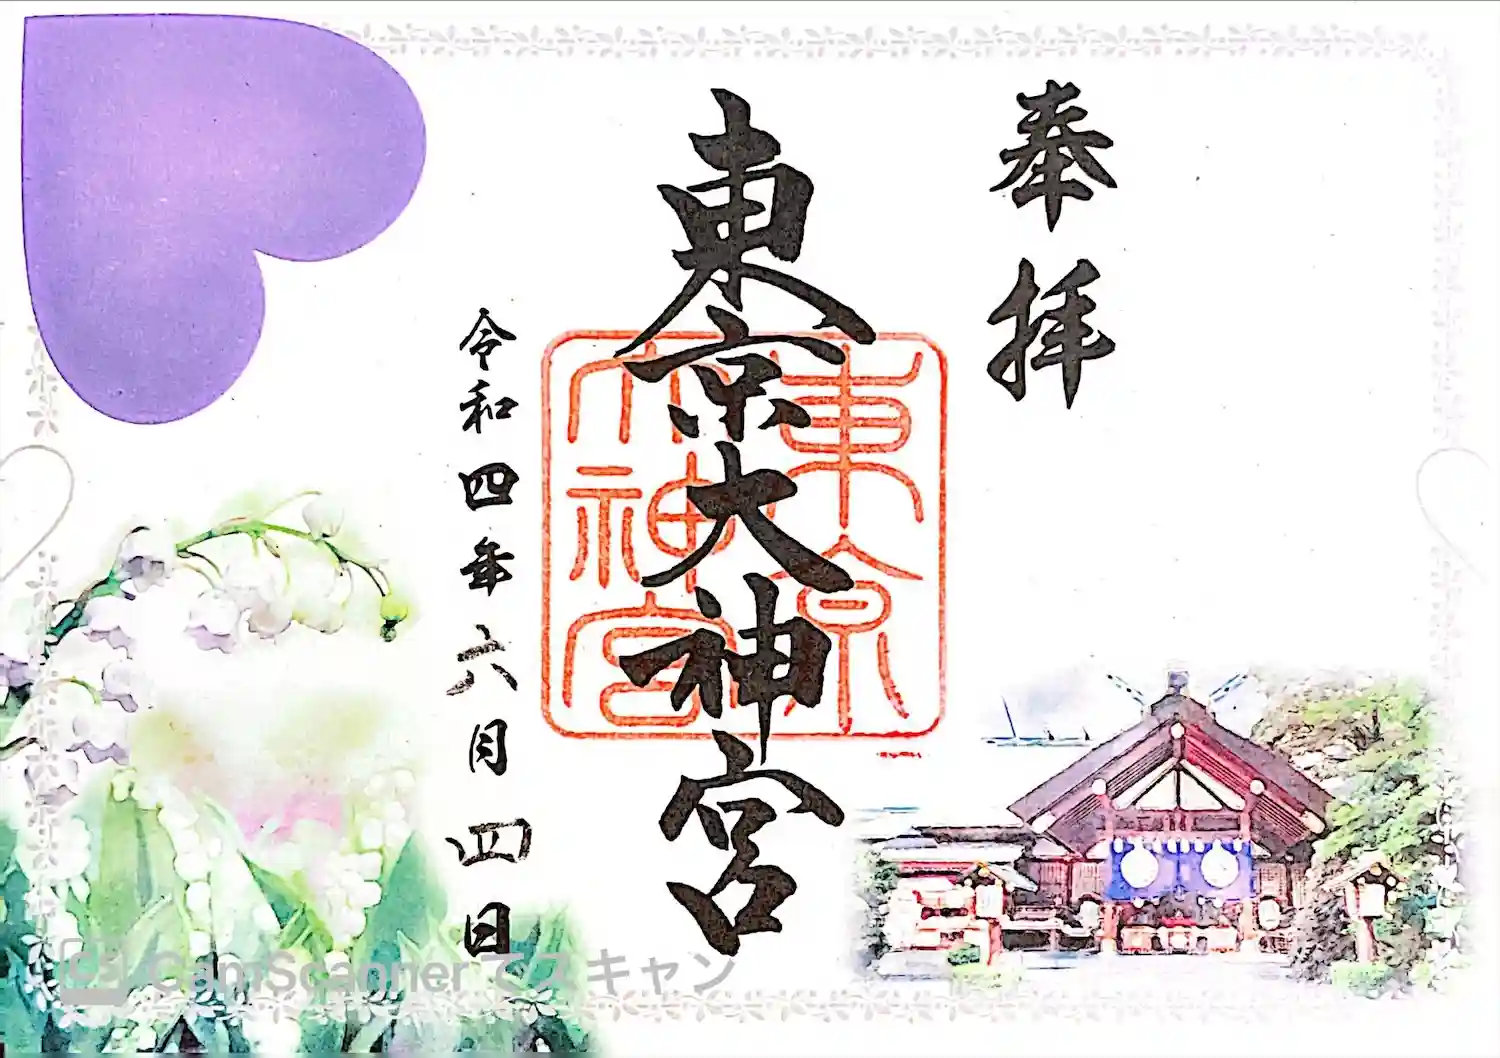 奉拝
東京大神宮
東京大神宮
令和四年六月四日
CamScannerでスキャン